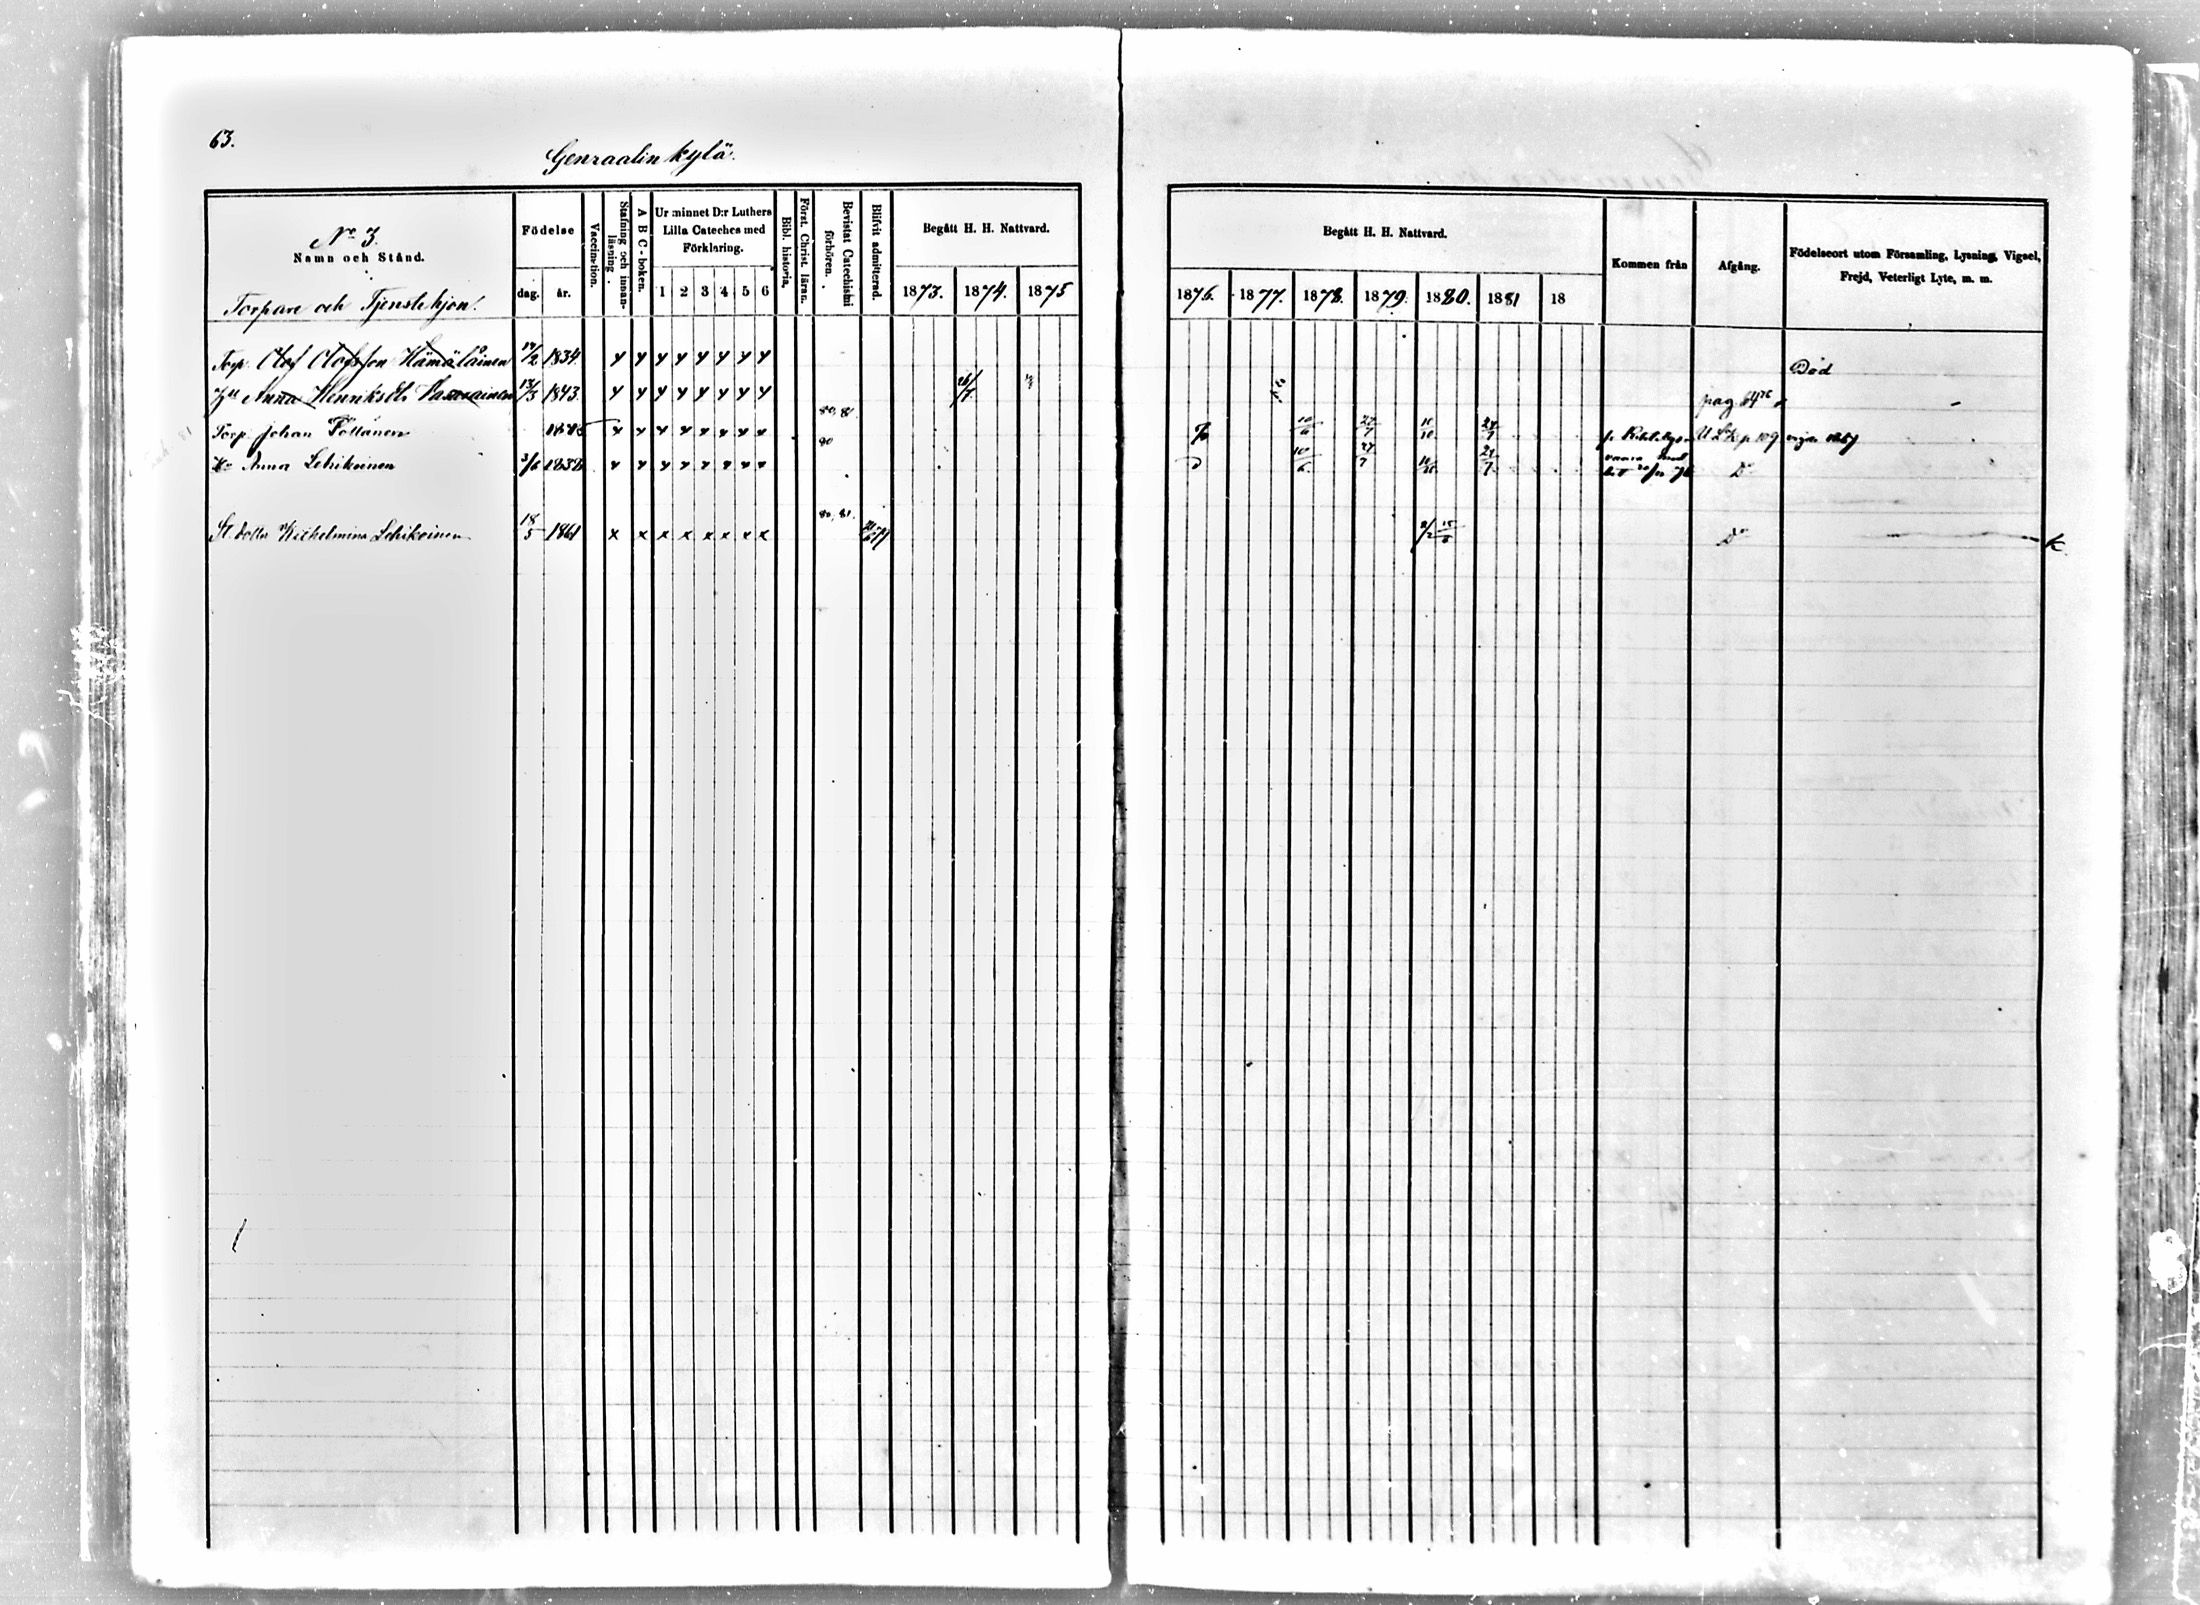 63.
Genraalin kylä.
No 3.
Namn och Stånd.
Torpare och Tjenstehjon!
Födelse
dag. år.
Vaccination.
Stafning och innan-läsning.
A B C-boken.
Ur minnet D:r Luthers
Lilla Cateches med
Förklaring.
1 2 3 4 5 6
Bibl. historia.
Förat. Christ. läran.
Bevistat Catechismi förhören.
Blifvit admitterad.
Begått H. H. Nattvard.
1873. 1874. 1875
Begått H. H. Nattvard.
1876. 1877. 1878. 1879. 1880. 1881 18
Kommen från
Afgång.
Födelseort utom Församling, Lysning, Vigsel,
Frejd, Veterligt Lyte, m. m.
Torp. Olof Olofsson Hämäläinen 17/2 1834. Död
Anna Henriksdr 13/3 1843. 26/7 pag. 64
Torp. Johan Pöllänen 80, 81 10/6 27/7 10/10 24/7 p. 109
Hu Anna Lehikoinen 3/6 1838 80 10/6 27/7 10/10 24/7 Do
St. dottr Wilhelmina Lehikoinen 18/5 1861 x x x x x x x x 80, 81. Do K.